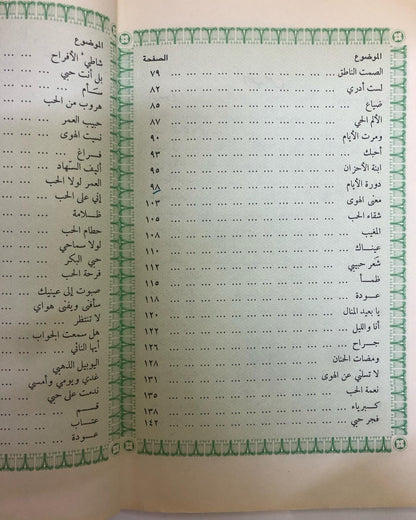 الموضوع الصفحة
الصمت الناطق ... ... ... ... ... ٧٩
لست أدري ... ... ... ... ... ٨٢
ضياع ... ... ... ... ... ٨٥
الألم الحي ... ... ... ... ... ٨٧
ومرت الأيام ... ... ... ... ... ٩٠
أحبك ... ... ... ... ... ٩٣
ابنة الأحزان ... ... ... ... ... ٩٥
دورة الأيام ... ... ... ... ... ٩٨
معنى الهوى ... ... ... ... ... ١٠٣
شقاء الحب ... ... ... ... ... ١٠٥
المغيب ... ... ... ... ... ١٠٨
عيناك ... ... ... ... ... ١١٠
شعر حبيبي ... ... ... ... ... ١١٢
ظمأ ... ... ... ... ... ١١٥
عودة ... ... ... ... ... ١١٨
يا بعيد المنال ... ... ... ... ... ١٢٠
أنا والليل ... ... ... ... ... ١٢٢
جراح ... ... ... ... ... ١٢٦
ومضات الحنان ... ... ... ... ... ١٢٨
لا تسلني عن الهوى ... ... ... ... ١٣١
نعمة الحب ... ... ... ... ... ١٣٥
كبرياء ... ... ... ... ... ١٣٨
فجر حبي ... ... ... ... ... ١٤٢
الموضوع
شاطئ الأفراح ... ...
بل أنت حبي ... ...
سأم ... ... ...
هروب من الحب ... ...
حبيب العمر ... ...
نسيت الهوى ... ...
فراغ ... ... ...
أليف السهاد ... ...
العمر لولا الحب ... ...
إني على الحب ... ...
ظلامة ... ... ...
حطام الحب ... ...
لولا سماحي ... ...
حبي البكر ... ...
فرحة الحب ... ...
صبوت إلى عينيك ... ...
سأفنى ويفنى هواي ...
لا تنتظر ... ... ...
هل سمعت الجواب ... ...
أيها النائي ... ...
اليوبيل الذهبي ... ...
غدي ويومي وأمسي ...
ندمت على حبي ... ...
قسم ... ... ...
عتاب ... ... ...
عودة ... ... ...